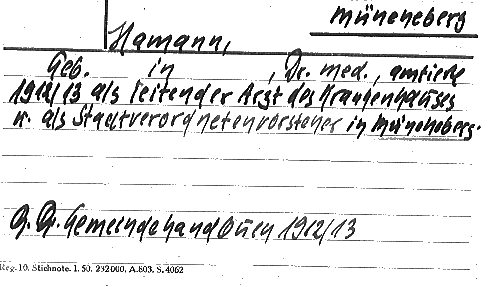 Müncheberg
Hamann,
Geb. in , Dr. med., amtierte
1912/13 als leitender Arzt des Krankenhauses
u. als Stadtverordnetenvorsteher in Müncheberg.
Gr. Gemeindehandbuch 1912/13
Reg. 10. Stichnote. I. 50. 232000, A.803. S. 4062